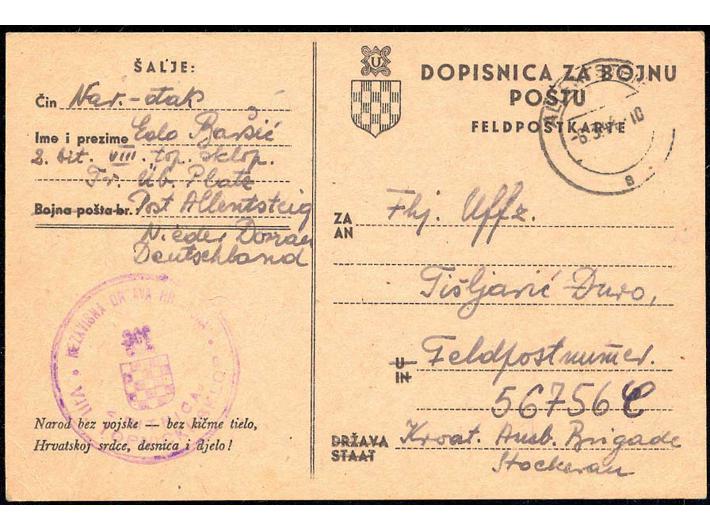 ŠALJE:
Čin Nar.-đak
Ime i prezime Edo Baršić
2. bit. VIII. top. sklop.
Tr. Üb. Platz
Bojna pošta br. Post Allentsteig
Nieder Donau
Deutschland
NEZAVISNA DRŽAVA HRVATSKA
VIII
Narod bez vojske — bez kičme tielo,
Hrvatskoj srdce, desnica i djelo!
U
DOPISNICA ZA BOJNU
POŠTU
FELDPOSTKARTE
-6.3.44.-10
a
ZA
AN
Fhj. Uffz.
Tišljarić Đuro,
U
IN
Feldpostnummer.
56756 C
DRŽAVA
STAAT
Kroat. Ausb. Brigade
Stockerau